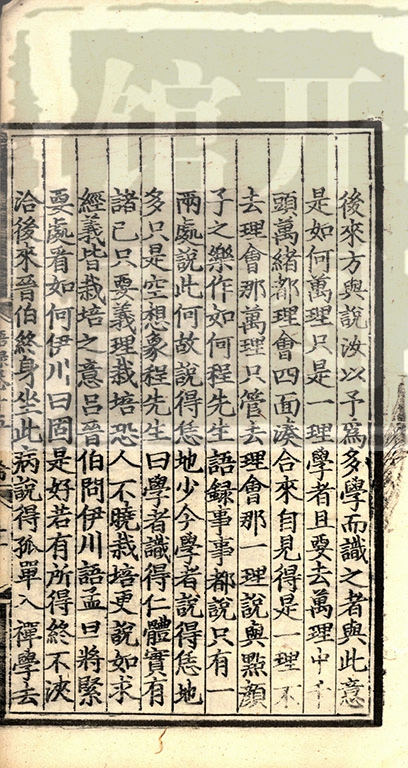 後來方與說汝以予爲多學而識之者與此意
是如何萬理只是一理學者且要去萬理中千
頭萬緒都理會四面湊合來自見得是一理不
去理會那萬理只管去理會那一理說與點顔
子之樂作如何程先生語録事事都說只有一
兩處說此何故說得恁地少今學者說得恁地
多只是空想象程先生曰學者識得仁體實有
諸己只要義理栽培恐人不曉栽培更說如求
經義皆栽培之意吕晉伯問伊川語孟曰將緊
要處看如何伊川曰固是好若有所得終不浹
洽後來晉伯終身坐此病說得孤單入禪學去